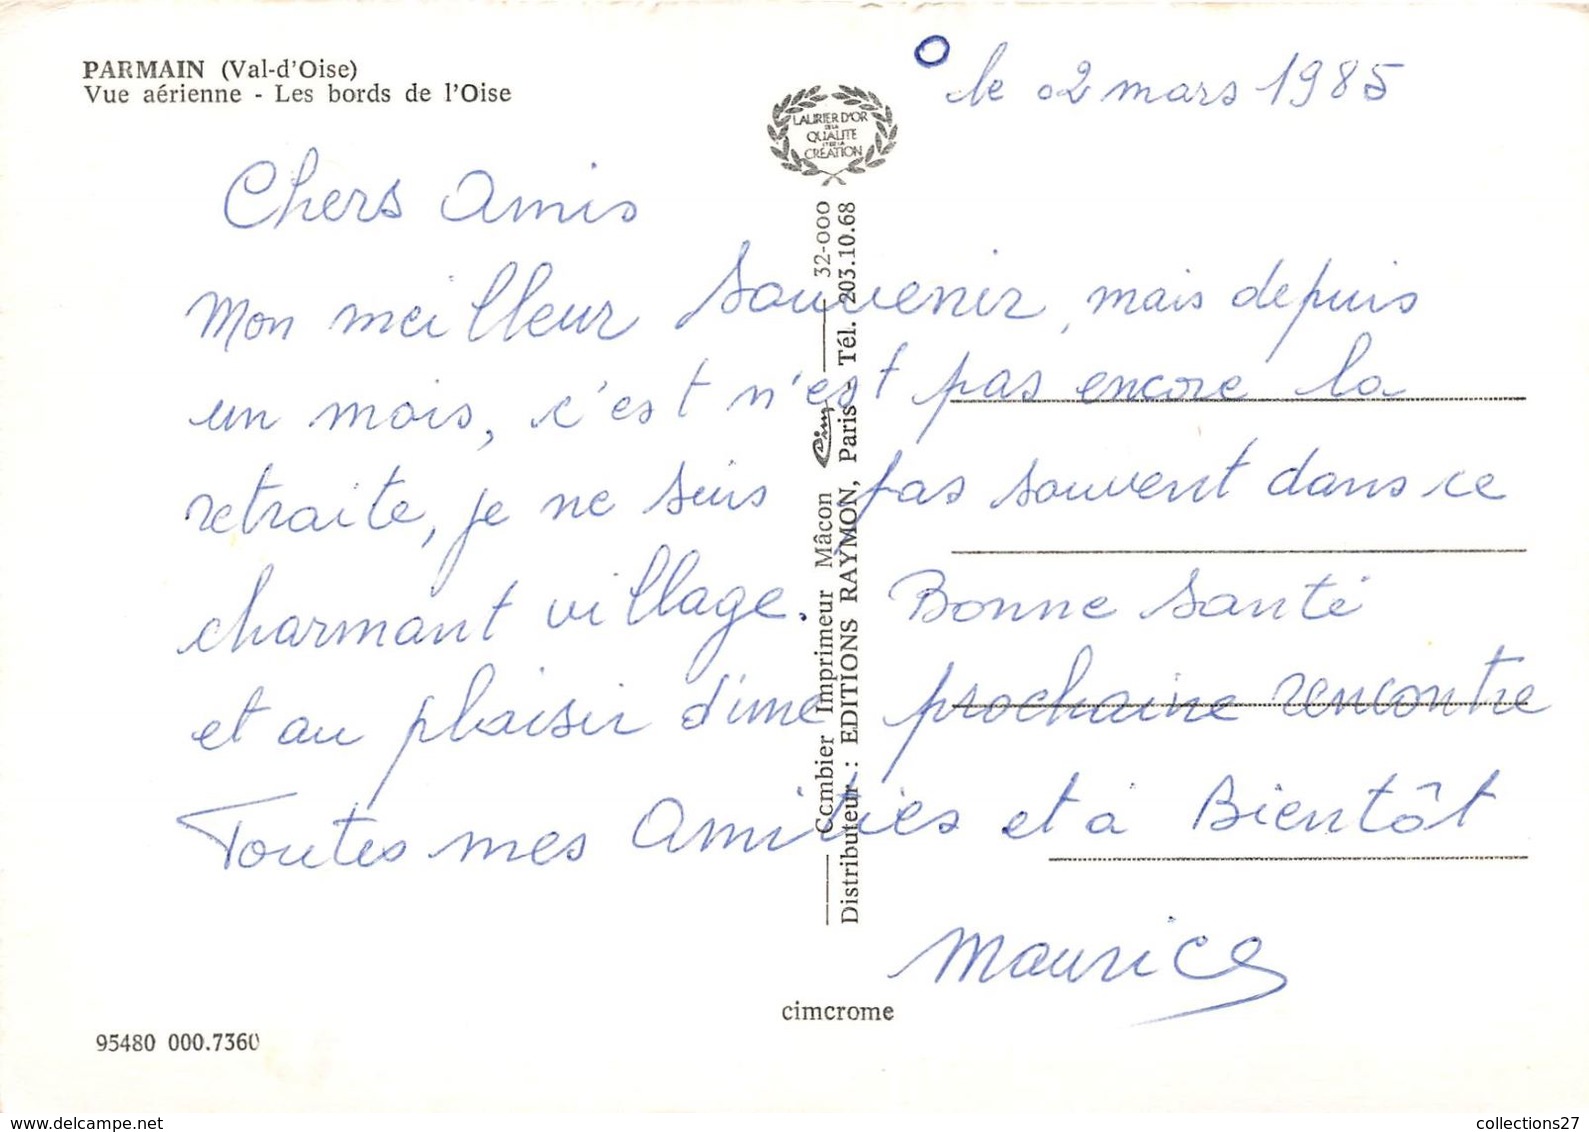 PARMAIN (Val-d'Oise)
Vue aérienne - Les bords de l'Oise
le 02 mars 1985
LAURIER D'OR
DE LA
QUALITE
ET DE LA
CREATION
Chers Amis
Mon meilleur souvenir, mais depuis
un mois, c'est n'est pas encore la
retraite, je ne suis pas souvent dans ce
charmant village. Bonne santé
et au plaisir d'une prochaine rencontre
Toutes mes Amitiés et à Bientôt
Maurice
Combier Imprimeur Mâcon Cim 32-000
Distributeur : EDITIONS RAYMON, Paris - Tél. 203.10.68
cimcrome
95480 000.7360
collections27